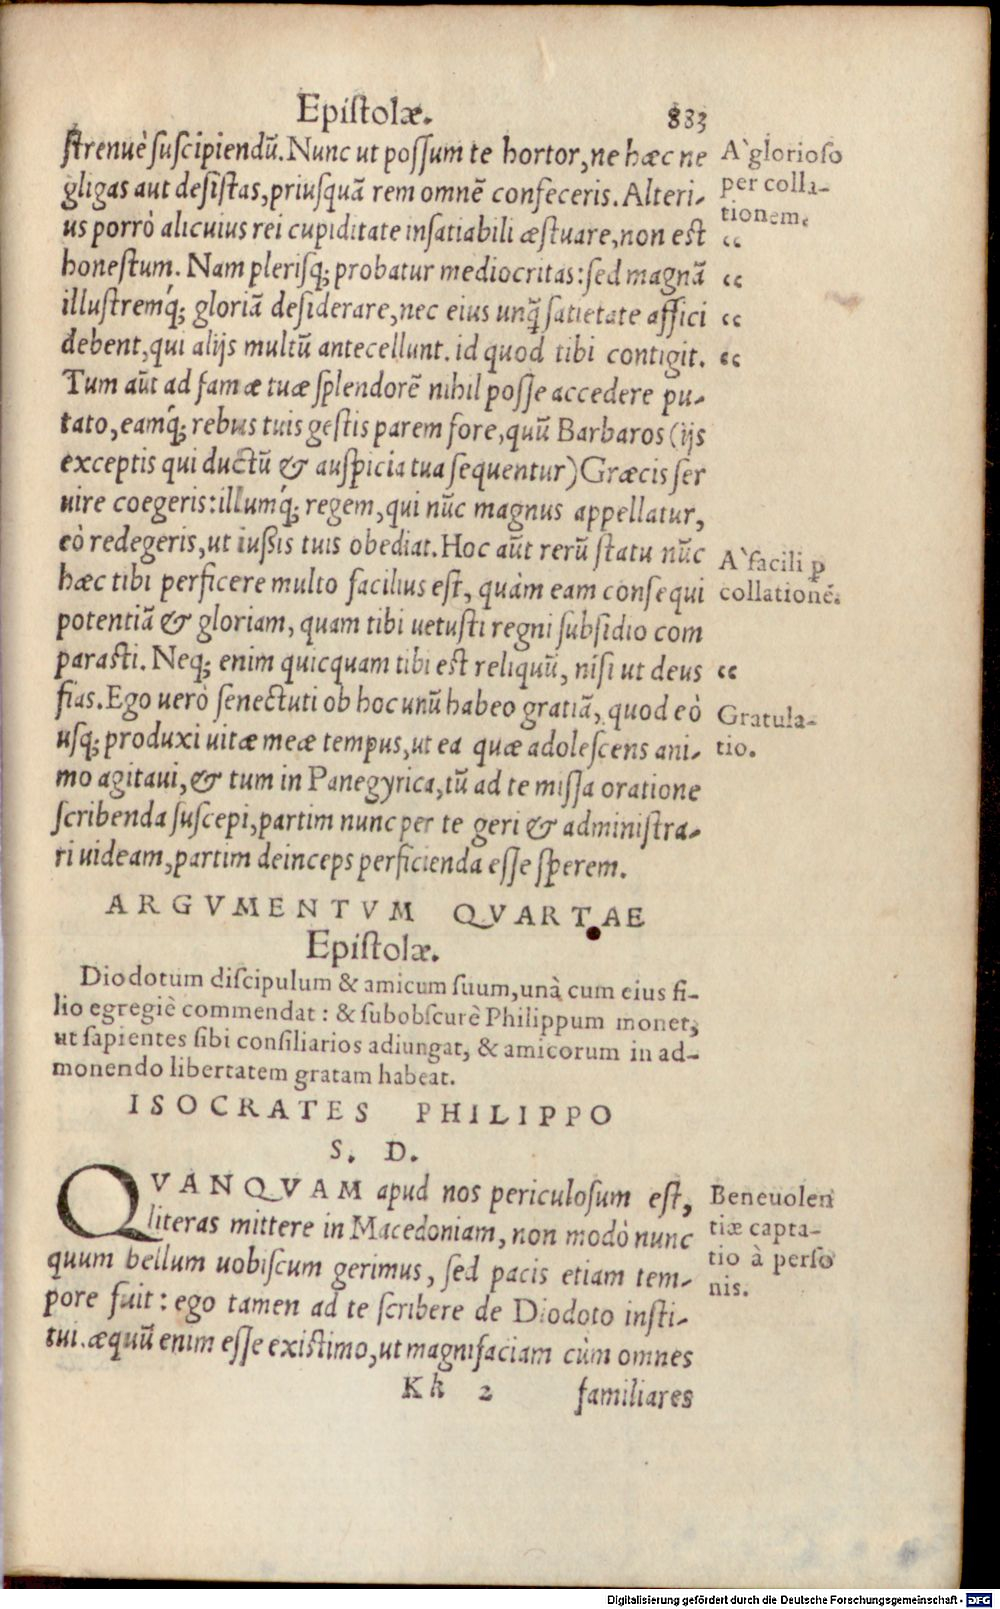 Epistolæ. 883
strenuè suscipiendū. Nunc ut possum te hortor, ne hæc ne
gligas aut desistas, priusquā rem omnē confeceris. Alteri-
us porrò alicuius rei cupiditate insatiabili æstuare, non est
honestum. Nam plerisq; probatur mediocritas: sed magnā
illustremq́; gloriā desiderare, nec eius unq̃ satietate affici
debent, qui alijs multū antecellunt. id quod tibi contigit.
Tum aūt ad famæ tuæ splendorē nihil posse accedere pu-
tato, eamq́; rebus tuis gestis parem fore, quū Barbaros (ijs
exceptis qui ductū & auspicia tua sequentur) Græcis ser
uire coegeris: illumq́; regem, qui nūc magnus appellatur,
eò redegeris, ut iussis tuis obediat. Hoc aūt rerū statu nūc
hæc tibi perficere multo facilius est, quàm eam consequi
potentiā & gloriam, quam tibi uetusti regni subsidio com
parasti. Neq; enim quicquam tibi est reliquū, nisi ut deus
fias. Ego uerò senectuti ob hoc unū habeo gratiā, quod eò
usq; produxi uitæ meæ tempus, ut ea quæ adolescens ani-
mo agitaui, & tum in Panegyrica, tū ad te missa oratione
scribenda suscepi, partim nunc per te geri & administra-
ri uideam, partim deinceps perficienda esse sperem.
A` glorioso
per colla-
tionem.
“
“
“
“
A` facili ꝑ
collationē.
“
Gratula-
tio.
ARGVMENTVM QVARTAE
Epistolæ.
Diodotum discipulum & amicum suum, unà cum eius fi-
lio egregiè commendat: & subobscurè Philippum monet,
ut sapientes sibi consiliarios adiungat, & amicorum in ad-
monendo libertatem gratam habeat.
ISOCRATES PHILIPPO
S. D.
QVANQVAM apud nos periculosum est,
literas mittere in Macedoniam, non modò nunc
quum bellum uobiscum gerimus, sed pacis etiam tem-
pore fuit: ego tamen ad te scribere de Diodoto insti-
tui. æquū enim esse existimo, ut magnifaciam cùm omnes
Beneuolen
tiæ capta-
tio à perso
nis.
Kk 2 familiares
Digitalisierung gefördert durch die Deutsche Forschungsgemeinschaft - DFG